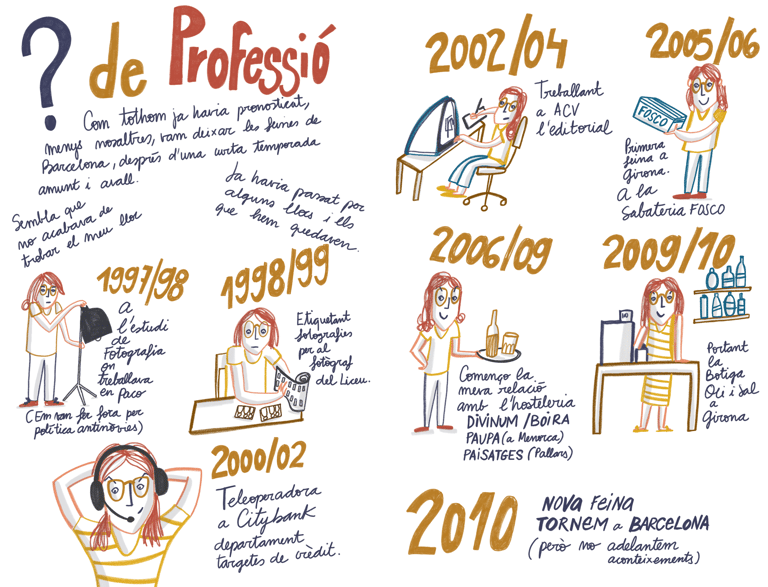 ? de Professió
Com tothom ja havia pronosticat,
menys nosaltres, vam deixar les feines de
Barcelona, després d'una curta temporada
amunt i avall.
Ja havia passat per
alguns llocs i els
que hem quedaven.
Sembla que
no acabava de
trobar el meu lloc
1997/98
A
l'estudi
de
Fotografia
on
treballava
en Paco
(Em van fer fora per
política antinòvies)
1998/99
Etiquetant
fotografies
per al
fotògraf
del Liceu.
2000/02
Teleoperadora
a Citybank
departament
targetes de crèdit.
2002/04
Treballant
a ACV
l'editorial
2005/06
FOSCO
Primera
feina a
Girona.
A la
Sabateria FOSCO
2006/09
Començo la
meva relació
amb l'hosteleria
DIVINUM/BOIRA
PAUPA (a Menorca)
PAISATGES (Pallars)
2009/10
Portant
la
Botiga
Oli i Sal
a
Girona
2010
NOVA FEINA
TORNEM a BARCELONA
(però no adelantem
aconteixements)